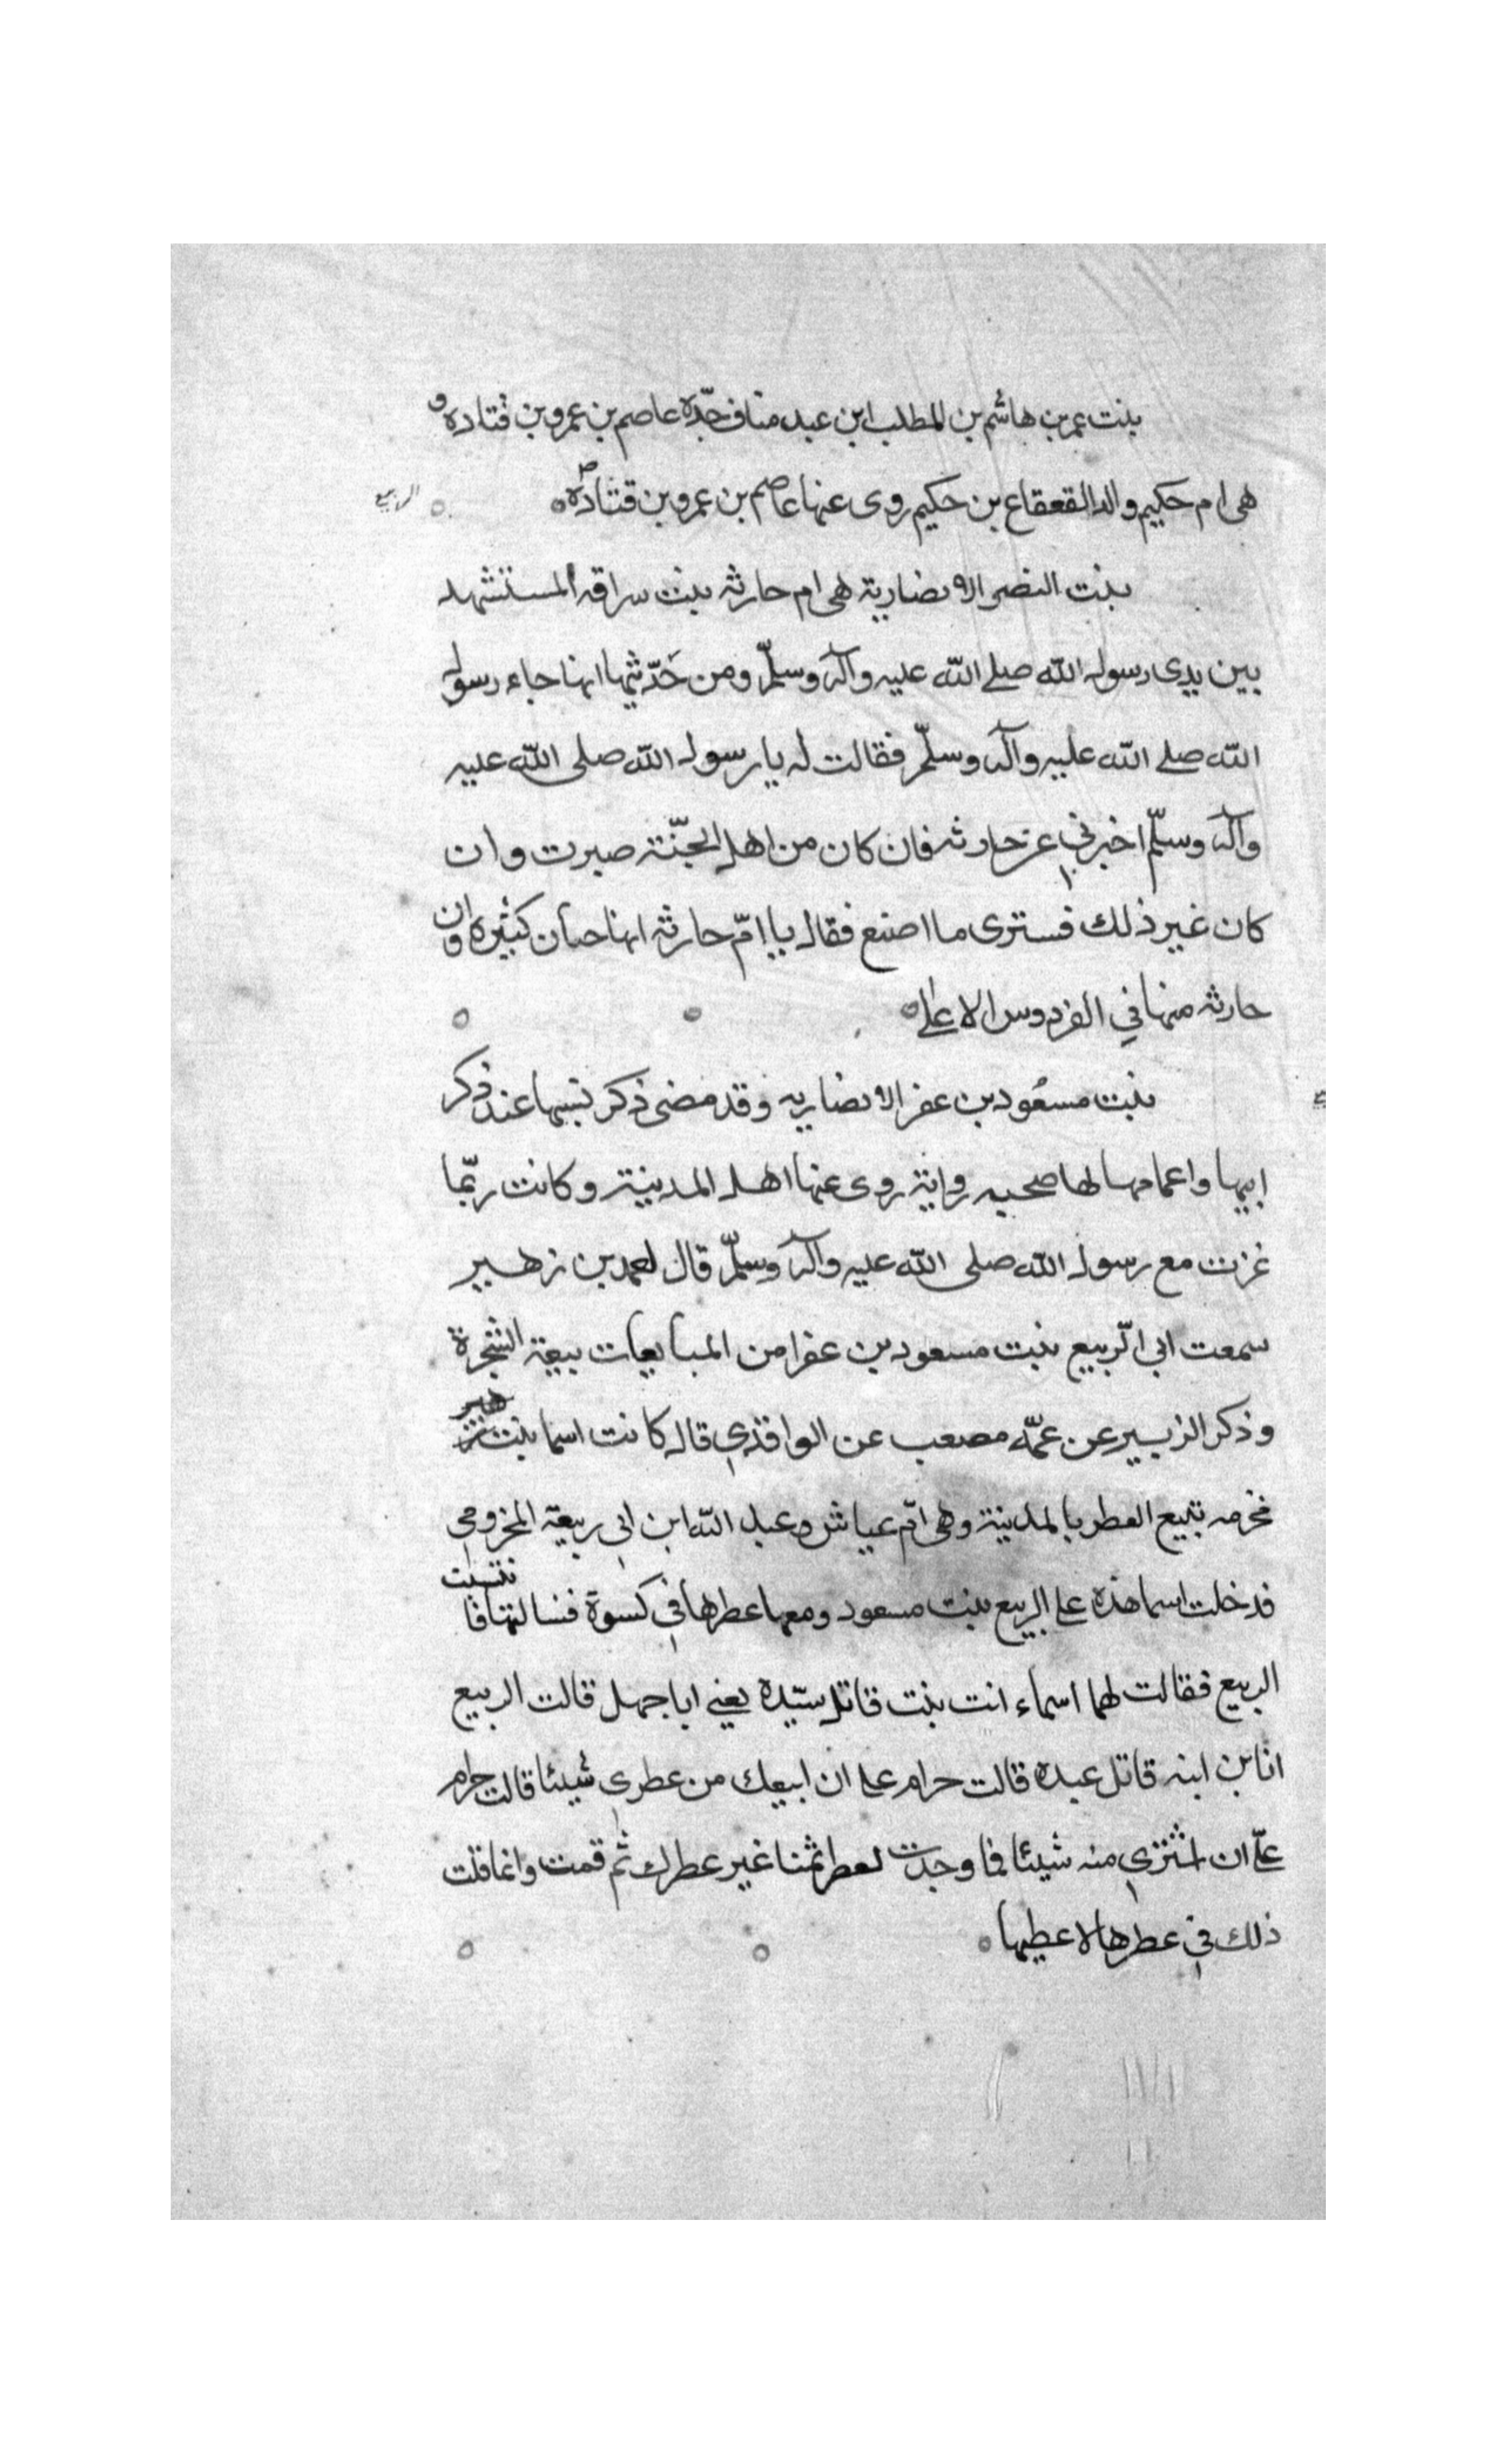 بنت عمر بن هاشم بن المطلب ابن عبد مناف جدّة عاصم بن عمرو بن قتادة و
هى ام حكيم والد القعقاع بن حكيم روى عنها عاصم بن عمرو بن قتادة
الربيع
بنت النضر الانصارية هى ام حارثه بنت سراقه المستشهد
بين يدى رسول الله صلى الله عليه وآله وسلّم ومن حَدّيثها انها جاء رسول
الله صلى الله عليه وآله وسلّم فقالت له يا رسول الله صلى الله عليه
وآله وسلّم اخبرني عن حارثه فان كان من اهل الجنّة صبرت وان
كان غير ذلك فسترى ما اصنع فقال يا امّ حارثه انها جنان كثيره وان
حارثه منها في الفردوس الاعلى
بنت مسعُود بن عفر الانصاريه وقد مضى ذكر نسبها عند ذكر
ابيها واعمامها لها صحبه رواية روى عنها اهل المدينة وكانت ربّما
غزت مع رسول الله صلى الله عليه وآله وسلّم قال احمد بن زهير
سمعت ابى الرّبيع بنت مسعود بن عفرا من المبايعات بيعة الشجرة
وذكر الزبير عن عمّه مصعب عن الواقدي قال كانت اسما بنت
مخرمه تبيع العطر بالمدينة وهى امّ عياش وعبد الله ابن ابي ربيعة المخزومي
فدخلت اسما هذه على الربيع بنت مسعود ومعها عطرها في كسوة فسالتها فانتسبت
الربيع فقالت لها اسماء انت بنت قاتل سيّده يعنى ابا جهل قالت الربيع
انا بن ابنه قاتل عبده قالت حرام على ان ابيعك من عطرى شيئا قالت حرام
علىّ ان اشتري منه شيئا فما وجدت لعطر ثمنا غير عطرك ثم قمت وانما قلت
ذلك في عطرها لاعطيها